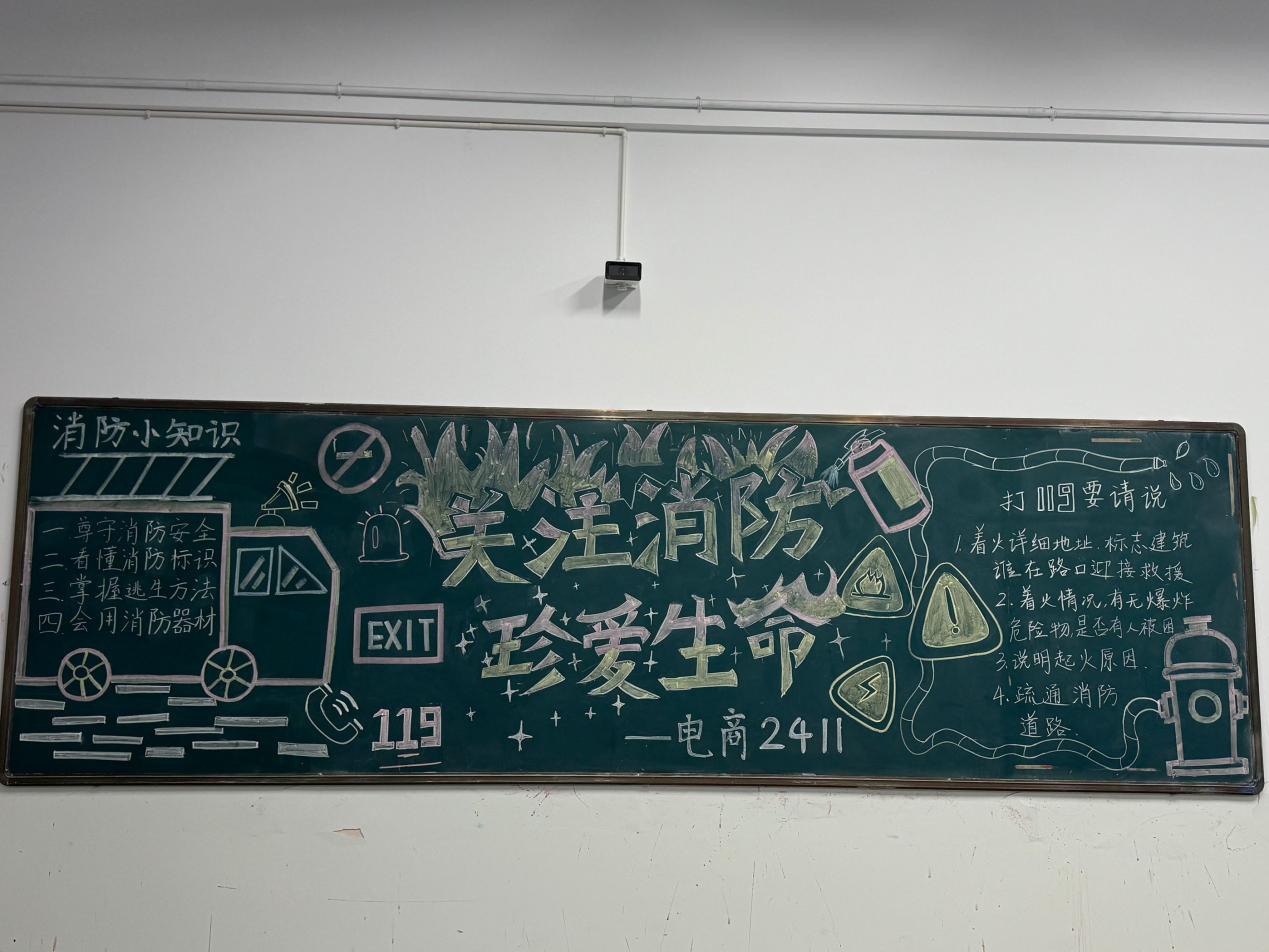 消防小知识
一.尊守消防安全
二.看懂消防标识
三.掌握逃生方法
四.会用消防器材
EXIT
119
关注消防
珍爱生命
—电商2411
打119要请说
1.着火详细地址.标志建筑
谁在路口迎接救援
2.着火情况.有无爆炸
危险物,是否有人被困
3.说明起火原因.
4.疏通消防
道路.